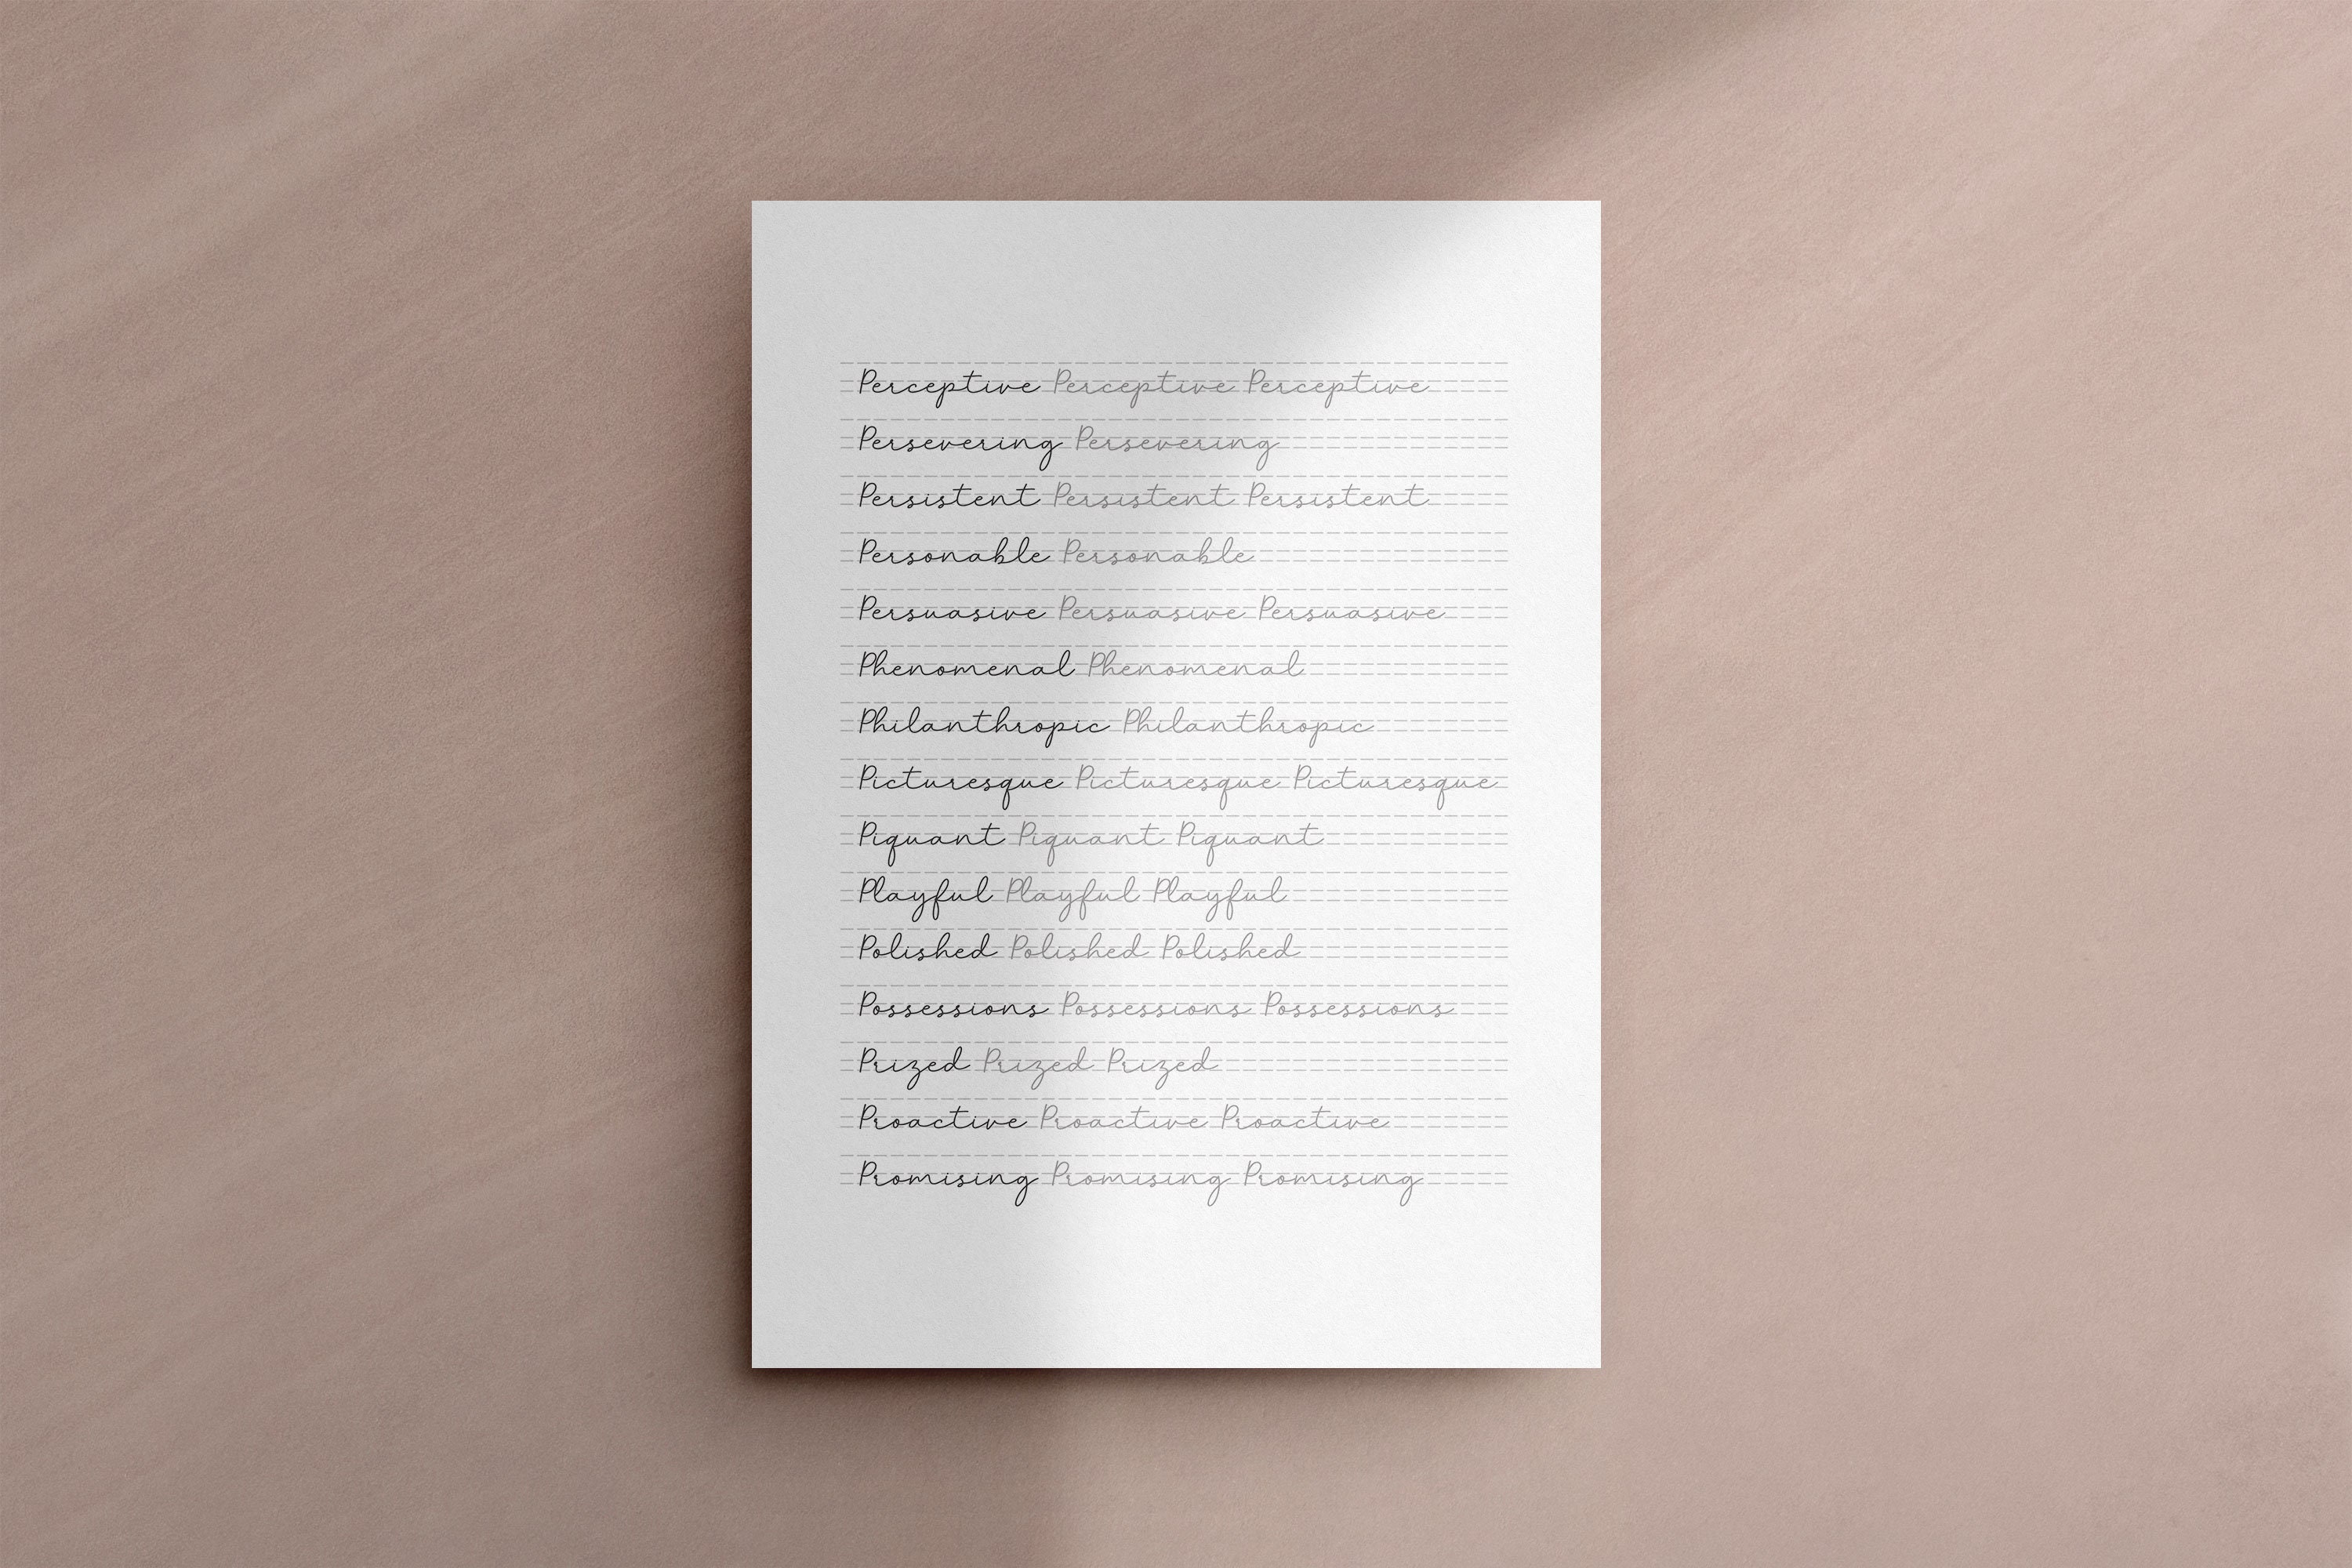 Perceptive Perceptive Perceptive
Persevering Persevering
Persistent Persistent Persistent
Personable Personable
Persuasive Persuasive Persuasive
Phenomenal Phenomenal
Philanthropic Philanthropic
Picturesque Picturesque Picturesque
Piquant Piquant Piquant
Playful Playful Playful
Polished Polished Polished
Possessions Possessions Possessions
Prized Prized Prized
Proactive Proactive Proactive
Promising Promising Promising